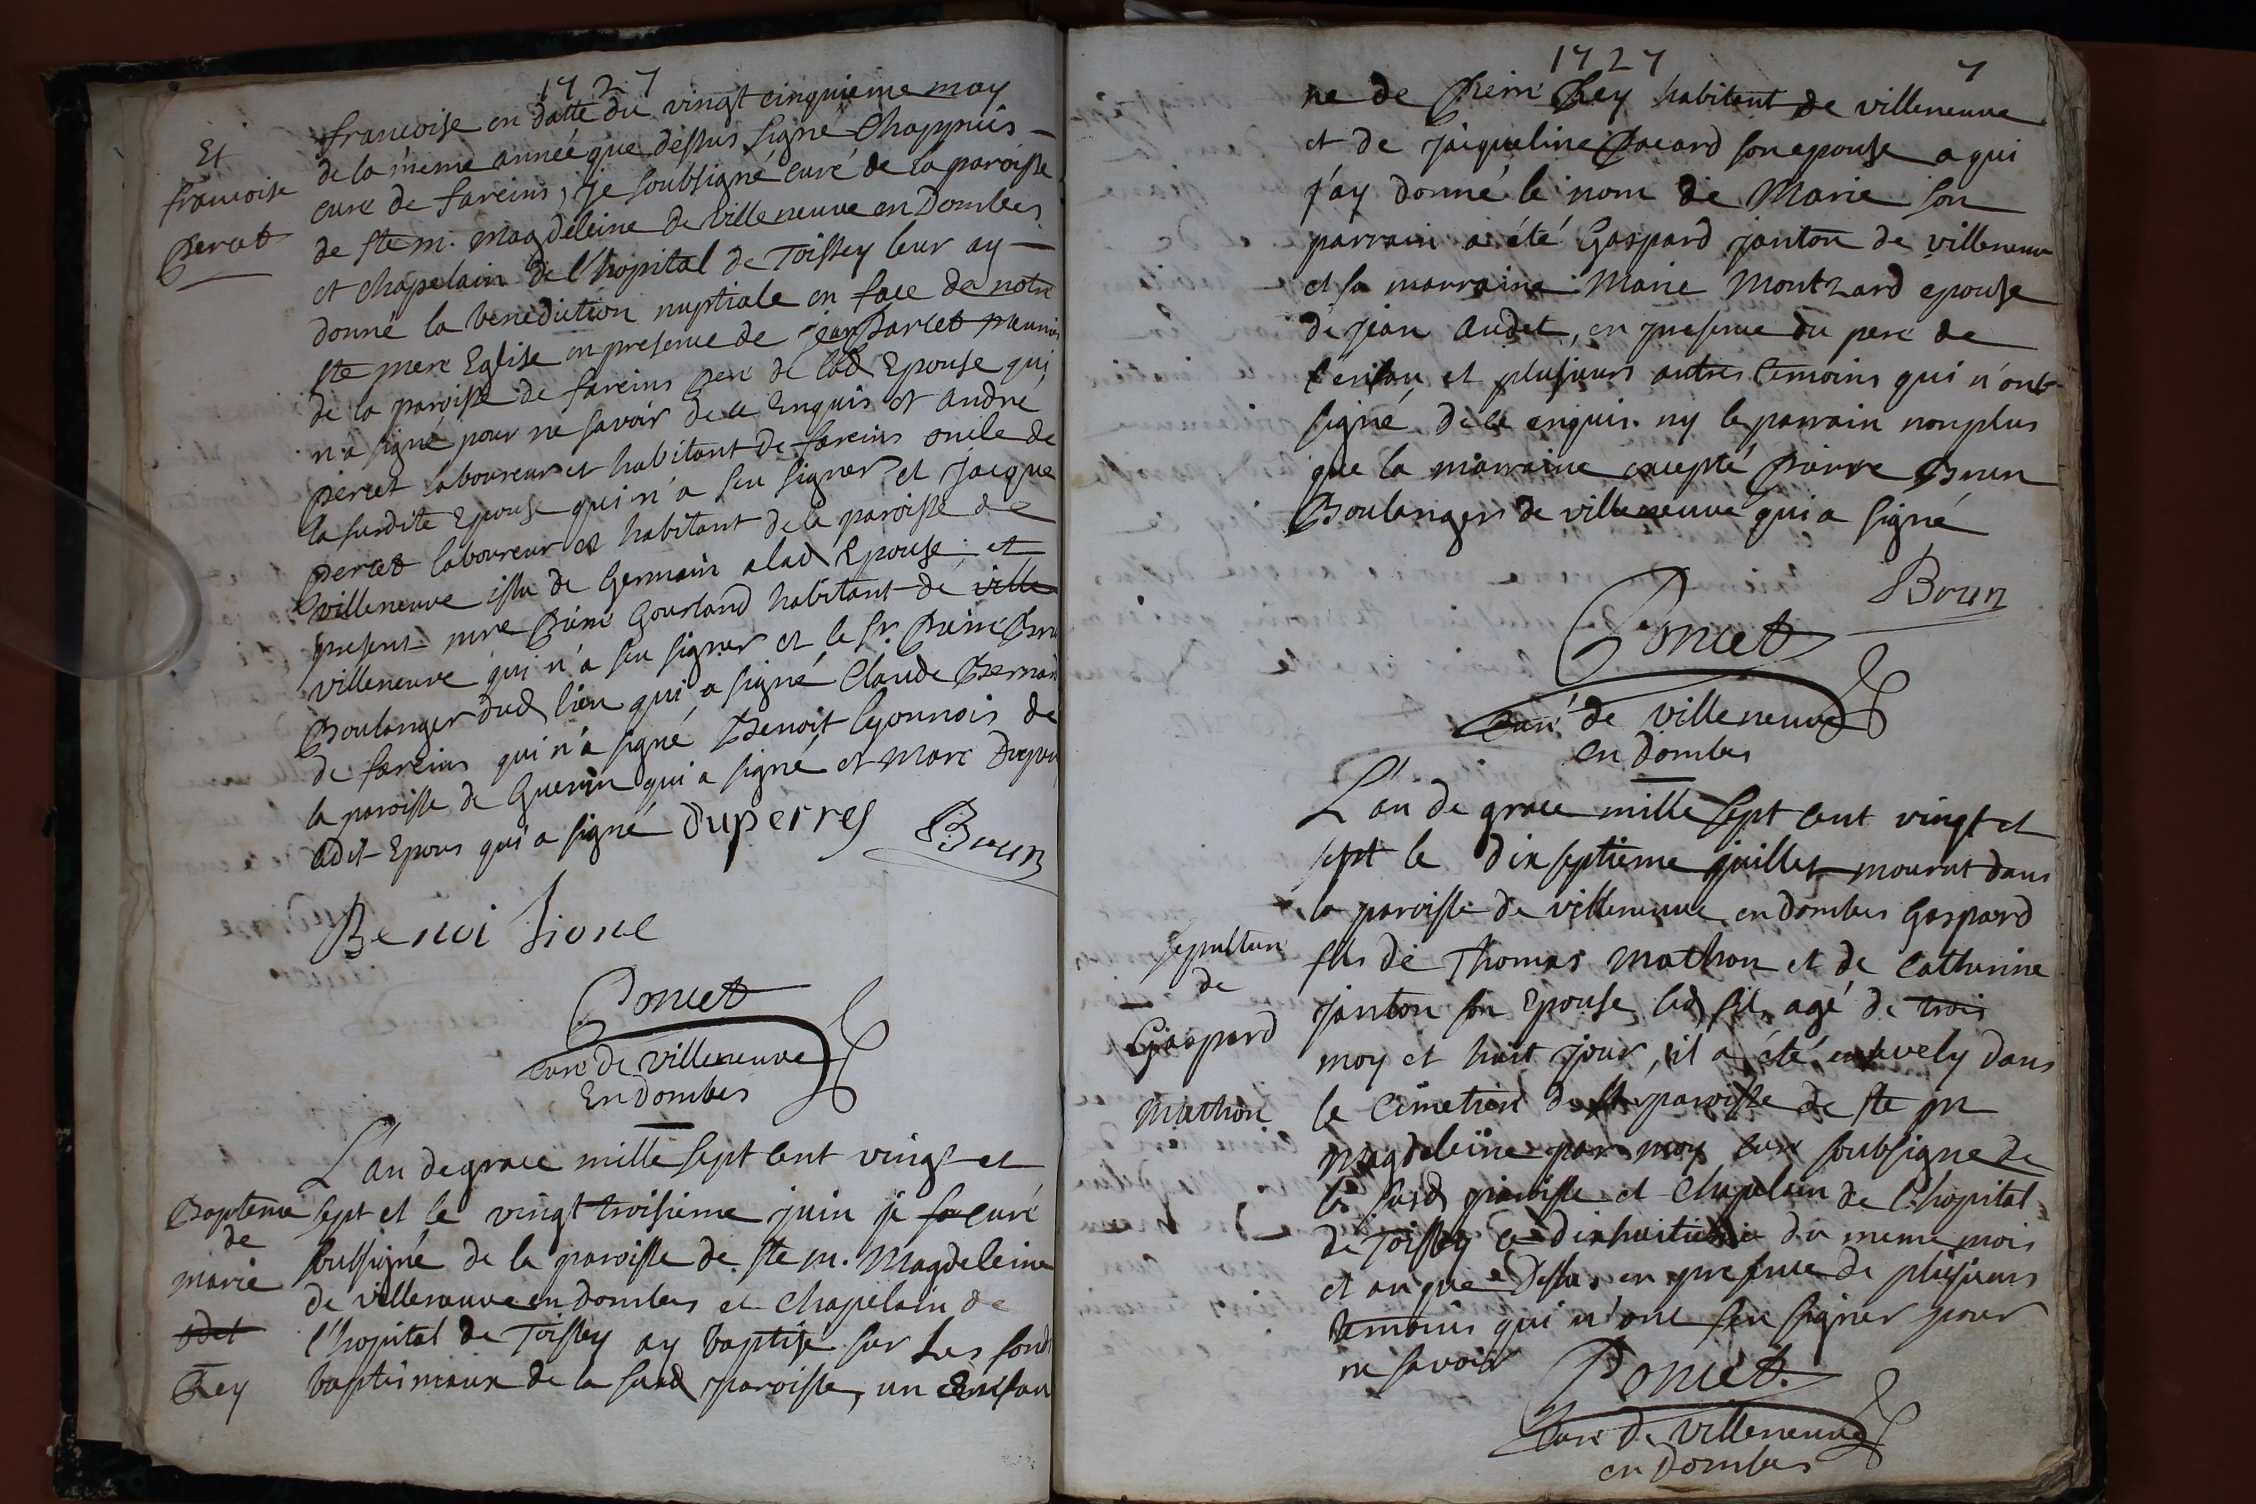 1727
Et
francoise
Percet
francoise en datte du vingt cinquieme may
de la meme année que dessus signé Chappuis
curé de fareins, je soubsigné curé de la paroisse
de ste m. magdeleine de villeneuve en Dombes
et chapelain de l'hopital de Toissey leur ay
donné la benediction nuptiale en face de notre
ste mere Eglise en presence de jean
de la paroisse de fareins pere de lad Epouse qui
n'a signé pour ne savoir de ce Enquis et andré
percet laboureur et habitant de fareins oncle de
la susdite Epouse qui n'a seu signer et jacque
percet laboureur et habitant de la paroisse de
villeneuve issu de Germain a lad Epouse et
present Pierre Gourland habitant de ville
villeneuve qui n'a seu signer et le sr. Pierre Brun
Boulanger dud lieu qui a signé Claude Bernard
de fareins qui n'a signé Benoit lyonnois de
la paroisse de Guerein qui a signé et Marc
udit Epoux qui a signé Duperres Brun
Benoi Lione
Poncet
curé de villeneuve
En Dombes
Bapteme
de
marie
odet
Rey
L'an de grace mille sept cent vingt et
sept et le vingt troisieme juin je so curé
soussigné de la paroisse de ste m. Magdeleine
de villeneuve en Dombes et chapelain de
l'hopital de Toissey ay baptisé sur Les fonds
baptismaux de la susd paroisse, un Enfan
1727
7
ne de Pierre Rey habitent de villeneuve
et de jacqueline Pacard son epouse a qui
j'ay donné le nom de Marie son
parrain a été Gaspard janton de villeneuve
et sa marraine Marie Montzard epouse
de jean audet, en presence du pere de
l'enfan et plusieurs autres temoins qui n'ont
signé de ce enquis. ny le parrain non plus
que la marraine excepté Pierre Brun
Boulanger de villeneuve qui a signé
Brun
Poncet
Curé de villeneuve
en Dombes
Sepulture
de
Gaspard
Mathon
L'an de grace mille sept cent vingt et
sept le dix septieme juillet mourut dans
la paroisse de villeneuve en Dombes Gaspard
fils de Thomas Mathon et de Catherine
janton son Epouse led fils agé de trois
moy et huit jour, il a été ensevely dans
le Cimetiere de paroisse de ste m
Magdeleine par moy curé soubsigne de
la susd paroisse et chapelain de l'hopital
de Toissey le dixhuitieme du meme mois
et an que dessus en presence de plusieurs
temoins qui n'ont seu signer pour
ne savoir
Poncet.
Curé de villeneuve
en Dombes